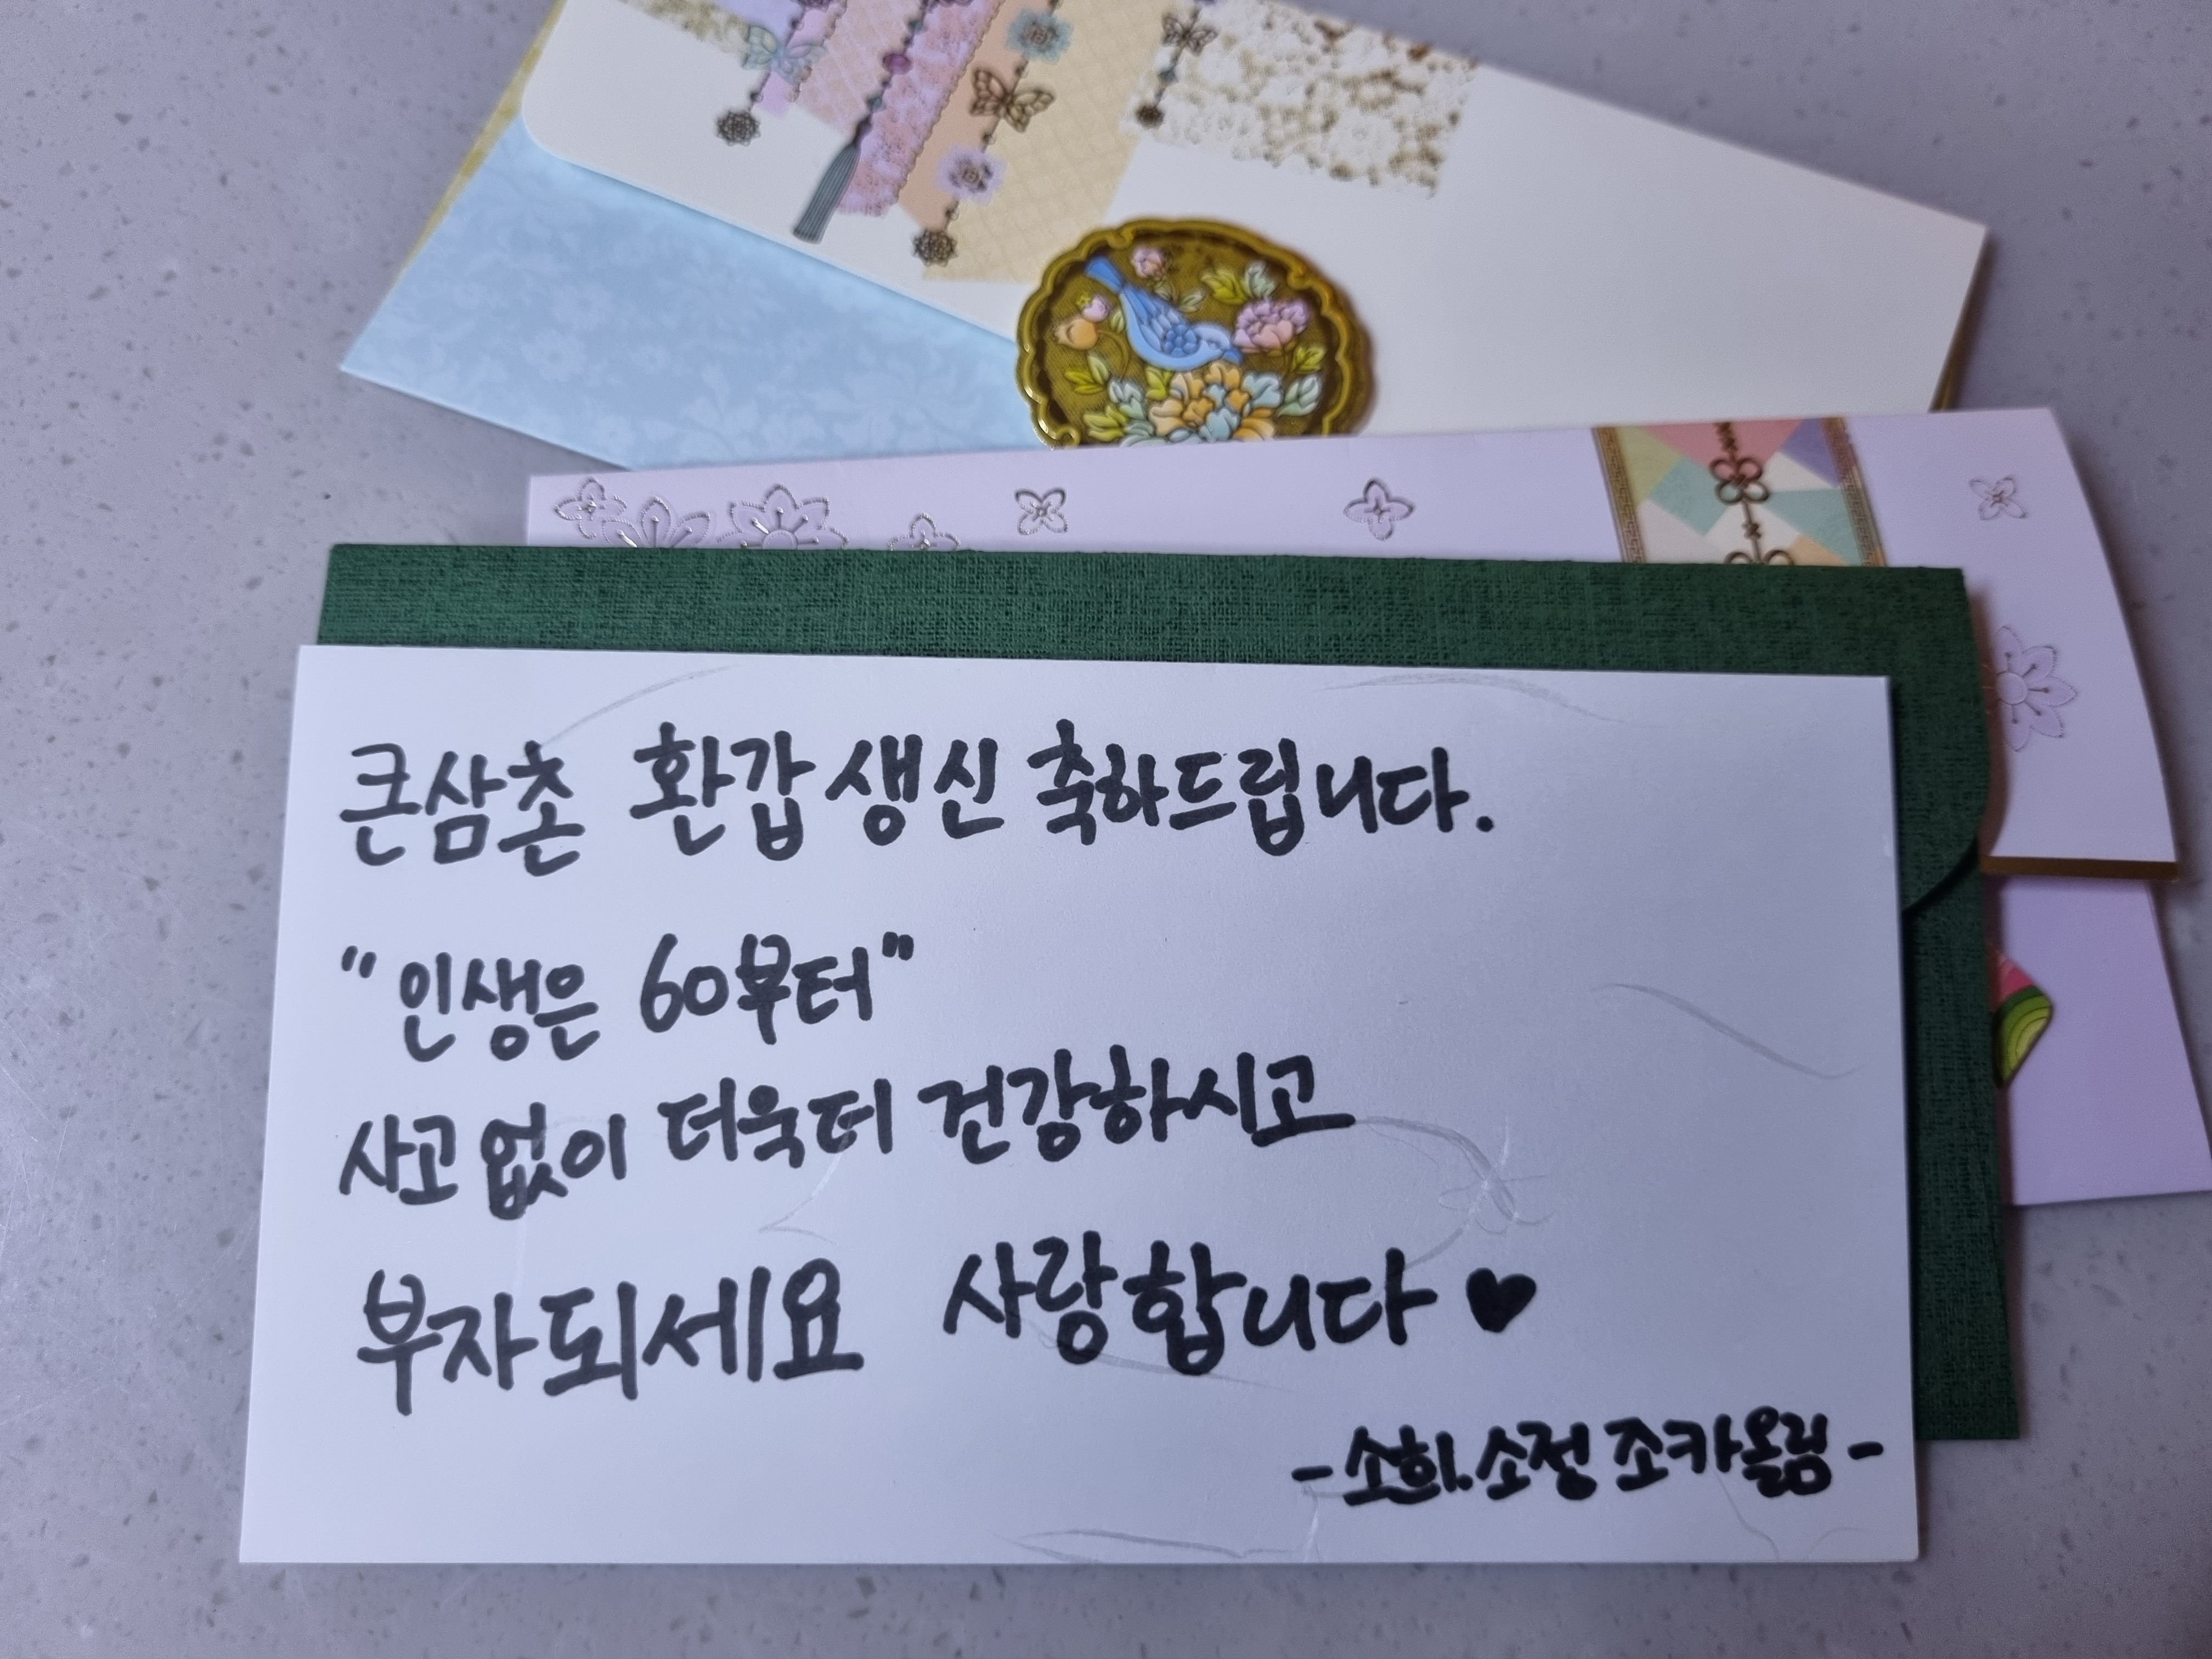 큰삼촌 환갑 생신 축하드립니다.
"인생은 60부터"
사고 없이 더욱더 건강하시고
부자되세요 사랑합니다 ♥
- 소희.소정 조카올림 -